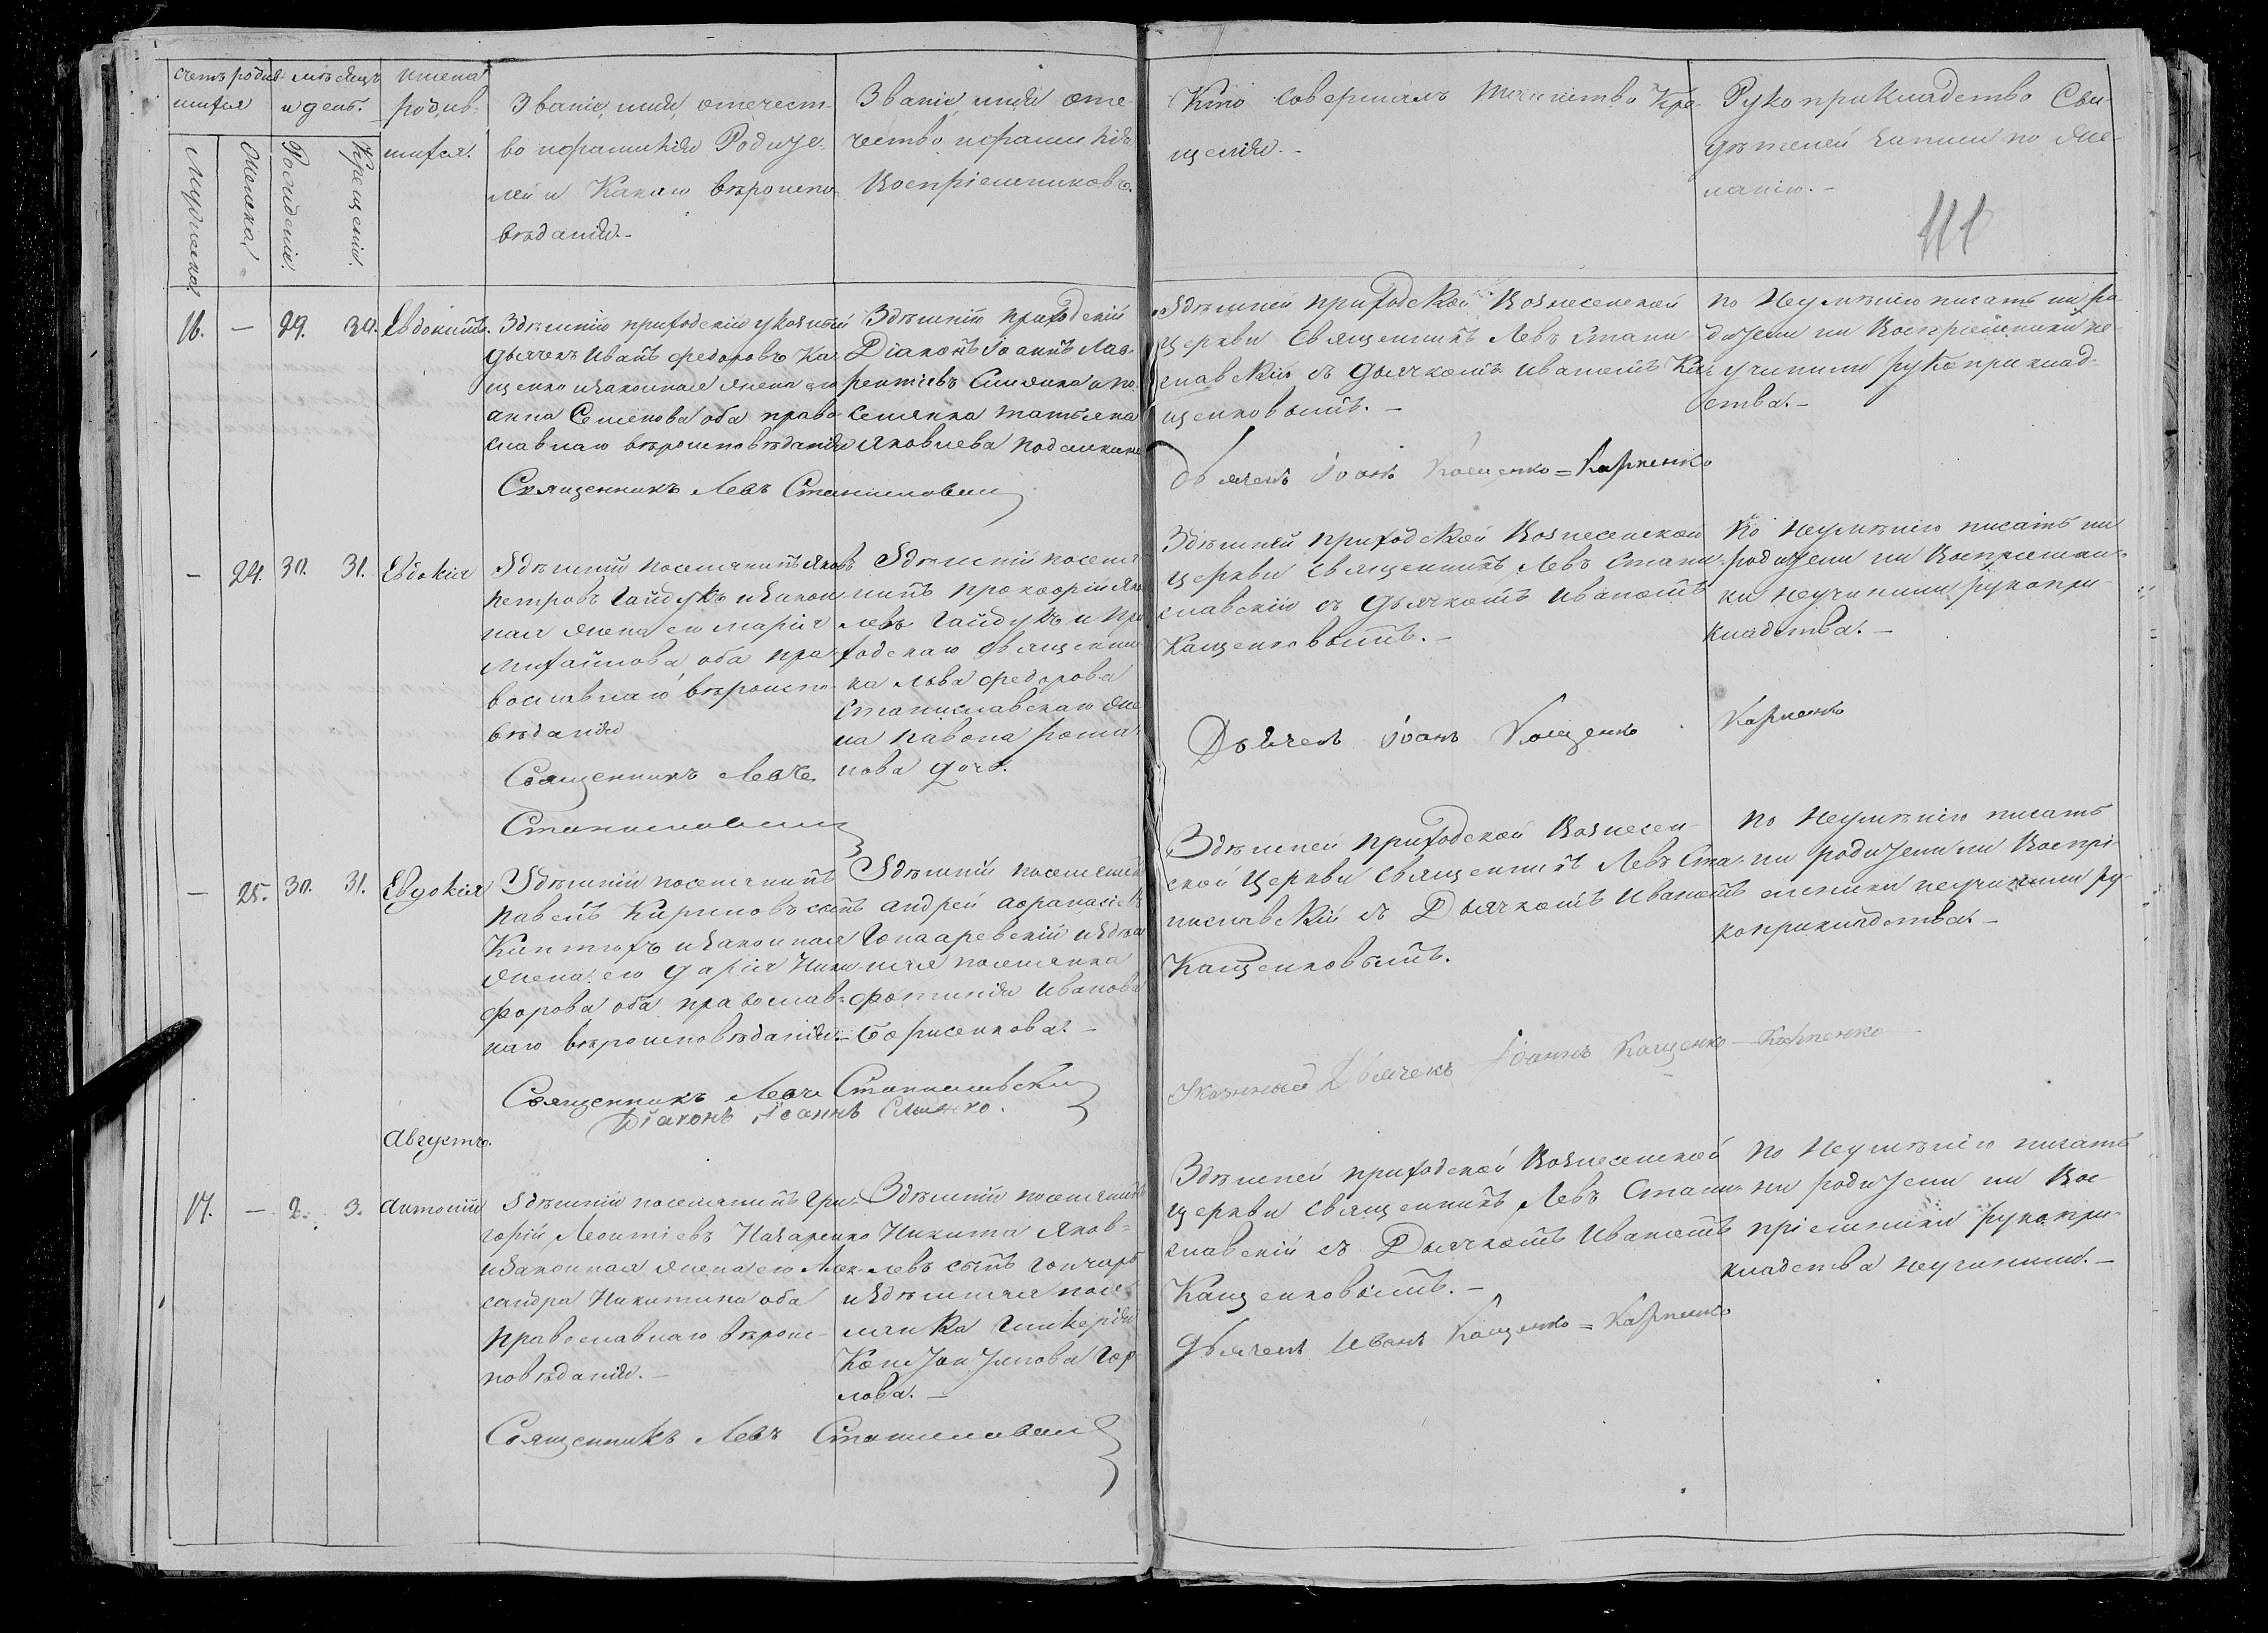 Счетъ родив-
шихся
мѣсяцъ
и день.
Имена
родив-
шихся.
Званіе, имя, отечест-
во и фамилія Родите-
лей и Какаго вѣроиспо-
вѣданія.-
Званіе имя оте-
чество, и фамилія
Воспріемниковъ.
Кто совершалъ таинство Кре-
щенія.-
Рукоприкладство Сви-
дѣтелей записи по же-
ланію.-
Мужеска
Женска
Рожденія.
Крещенія.
111
16. — 29. 30. Евдокимъ.
Здѣшній приходскій указный
дьячекъ Иванъ Федоровъ Ка-
щенко и законная жена его
анна Семенова оба право-
славнаго вѣроисповѣданія
Здѣшній приходскій
Діаконъ Іоаннъ Лав-
рентіевъ и по-
селянка татьяна
Яковлева
Священникъ Левъ Станиславскій
Здѣшней приходской Вознесенской
церкви Священникъ Левъ Стани-
славскій съ дьячкомъ Иваномъ Ка-
щенковымъ.-
Дьячекъ Іоанъ Кащенко=Карпенко
по неумѣнію писать ни ро-
дители ни Воспріемники не
учинили рукоприклад-
ства.-
— 24. 30. 31. Евдокія
Здѣшній поселянинъ Яковъ
Петровъ Гайдукъ и закон-
ная жена его Марія
Михайлова оба пра-
вославнаго вѣроиспо-
вѣданія
Здѣшній поселя-
нинъ прокофій Яков-
левъ Гайдукъ и при-
ходскаго Священни-
ка Льва Федорова
Станиславскаго же-
на Рома-
нова дочь.
Священникъ Левъ
Станиславскій
Здѣшней приходской Вознесенской
церкви Священникъ Левъ Стани-
славскій съ дьячкомъ Иваномъ
Кащенковымъ.-
Дьячекъ Іоанъ Кащенко Карпенко
По неумѣнію писать ни
родители ни Воспріемни-
ки неучинили рукопри-
кладства.-
— 25. 30. 31. Евдокія
Здѣшній поселянинъ
Павелъ Кириловъ сынъ
и законная
жена его Дарія Ники-
форова оба православ-
наго вѣроисповѣданія.-
Здѣшній поселянинъ
андрей афанасіевъ
и здѣш-
няя поселянка
фотинія Иванова
Борисенкова.-
Священникъ Левъ Станиславскій
Діаконъ Іоаннъ
Здѣшней приходской Вознесен-
ской Церкви Священникъ Левъ Ста-
ниславскій съ Дьячкомъ Иваномъ
Кащенковымъ.
Указный Дьячекъ Іоаннъ Кащенко-Карпенко
по неумѣнію писать
ни родители ни Воспрі-
емники неучинили ру-
коприкладства.-
Августъ.
17. — 2. 3. Антоній
Здѣшній поселянинъ Гри-
горій Леонтіевъ Назаренко
и законная жена его Алек-
сандра Никитина оба
православнаго вѣроис-
повѣданія.-
Здѣшній поселянинъ
Никита Яков-
левъ сынъ Гончаръ
и здѣшняя посе-
лянка Гликерія
Константинова Гор-
лова.-
Священникъ Левъ Станиславскій
Здѣшней приходской Вознесенской
церкви Священникъ Левъ Стани-
славскій съ Дьячкомъ Иваномъ
Кащенковымъ.-
Дьячекъ Иванъ Кащенко=Карпенко
По неумѣнію писать
ни родители ни Вос-
пріемники рукопри-
кладства неучинили.-